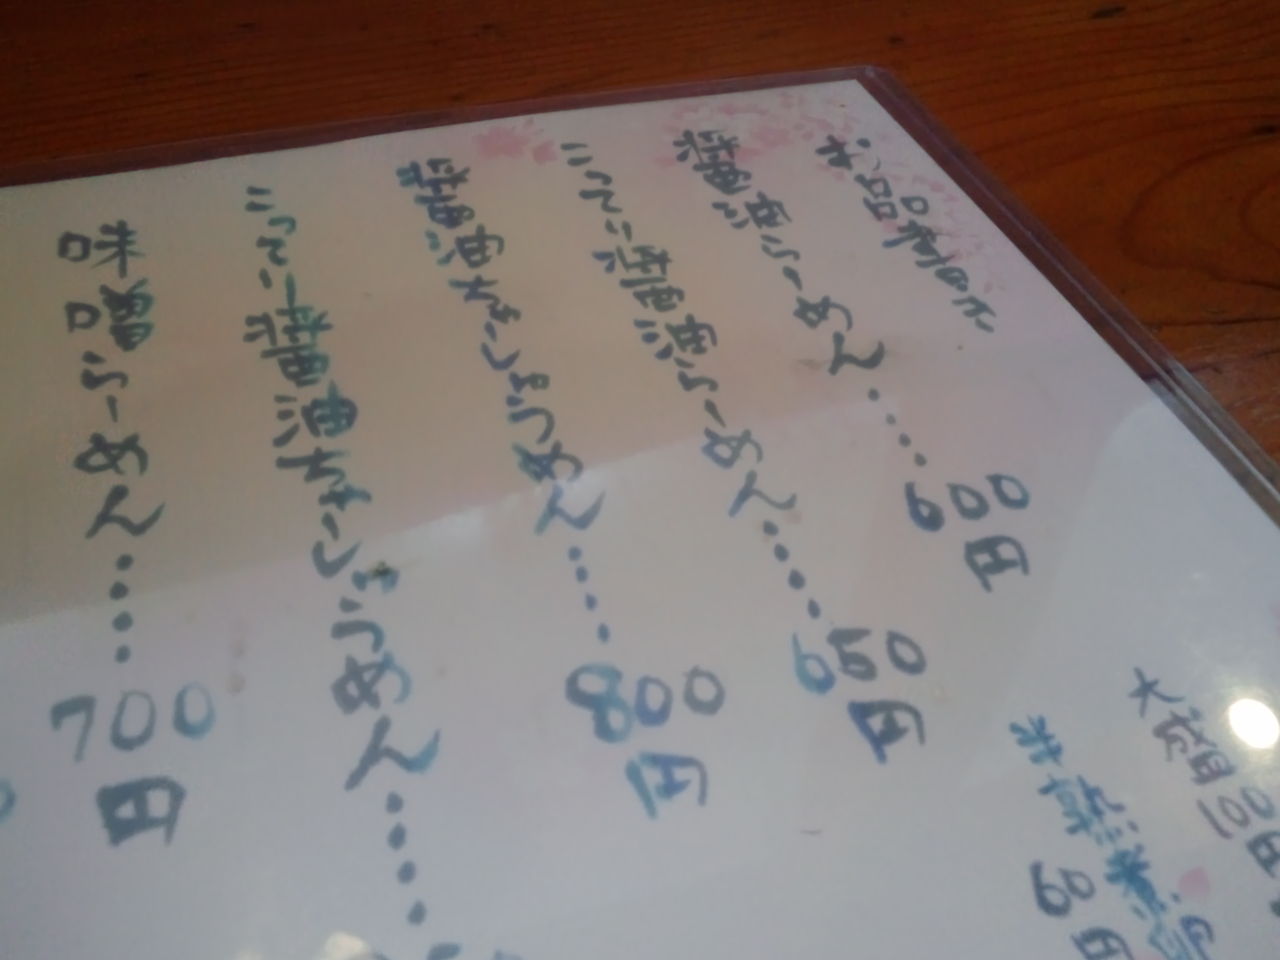 お品書き
醤油らーめん・・・・600円
こってり醤油らーめん・・・・650円
醤油ちゃーしゅうめん・・・800円
こってり醤油ちゃーしゅうめん・・・・
味噌らーめん・・・・700円
大盛100円
半熟煮卵
60円